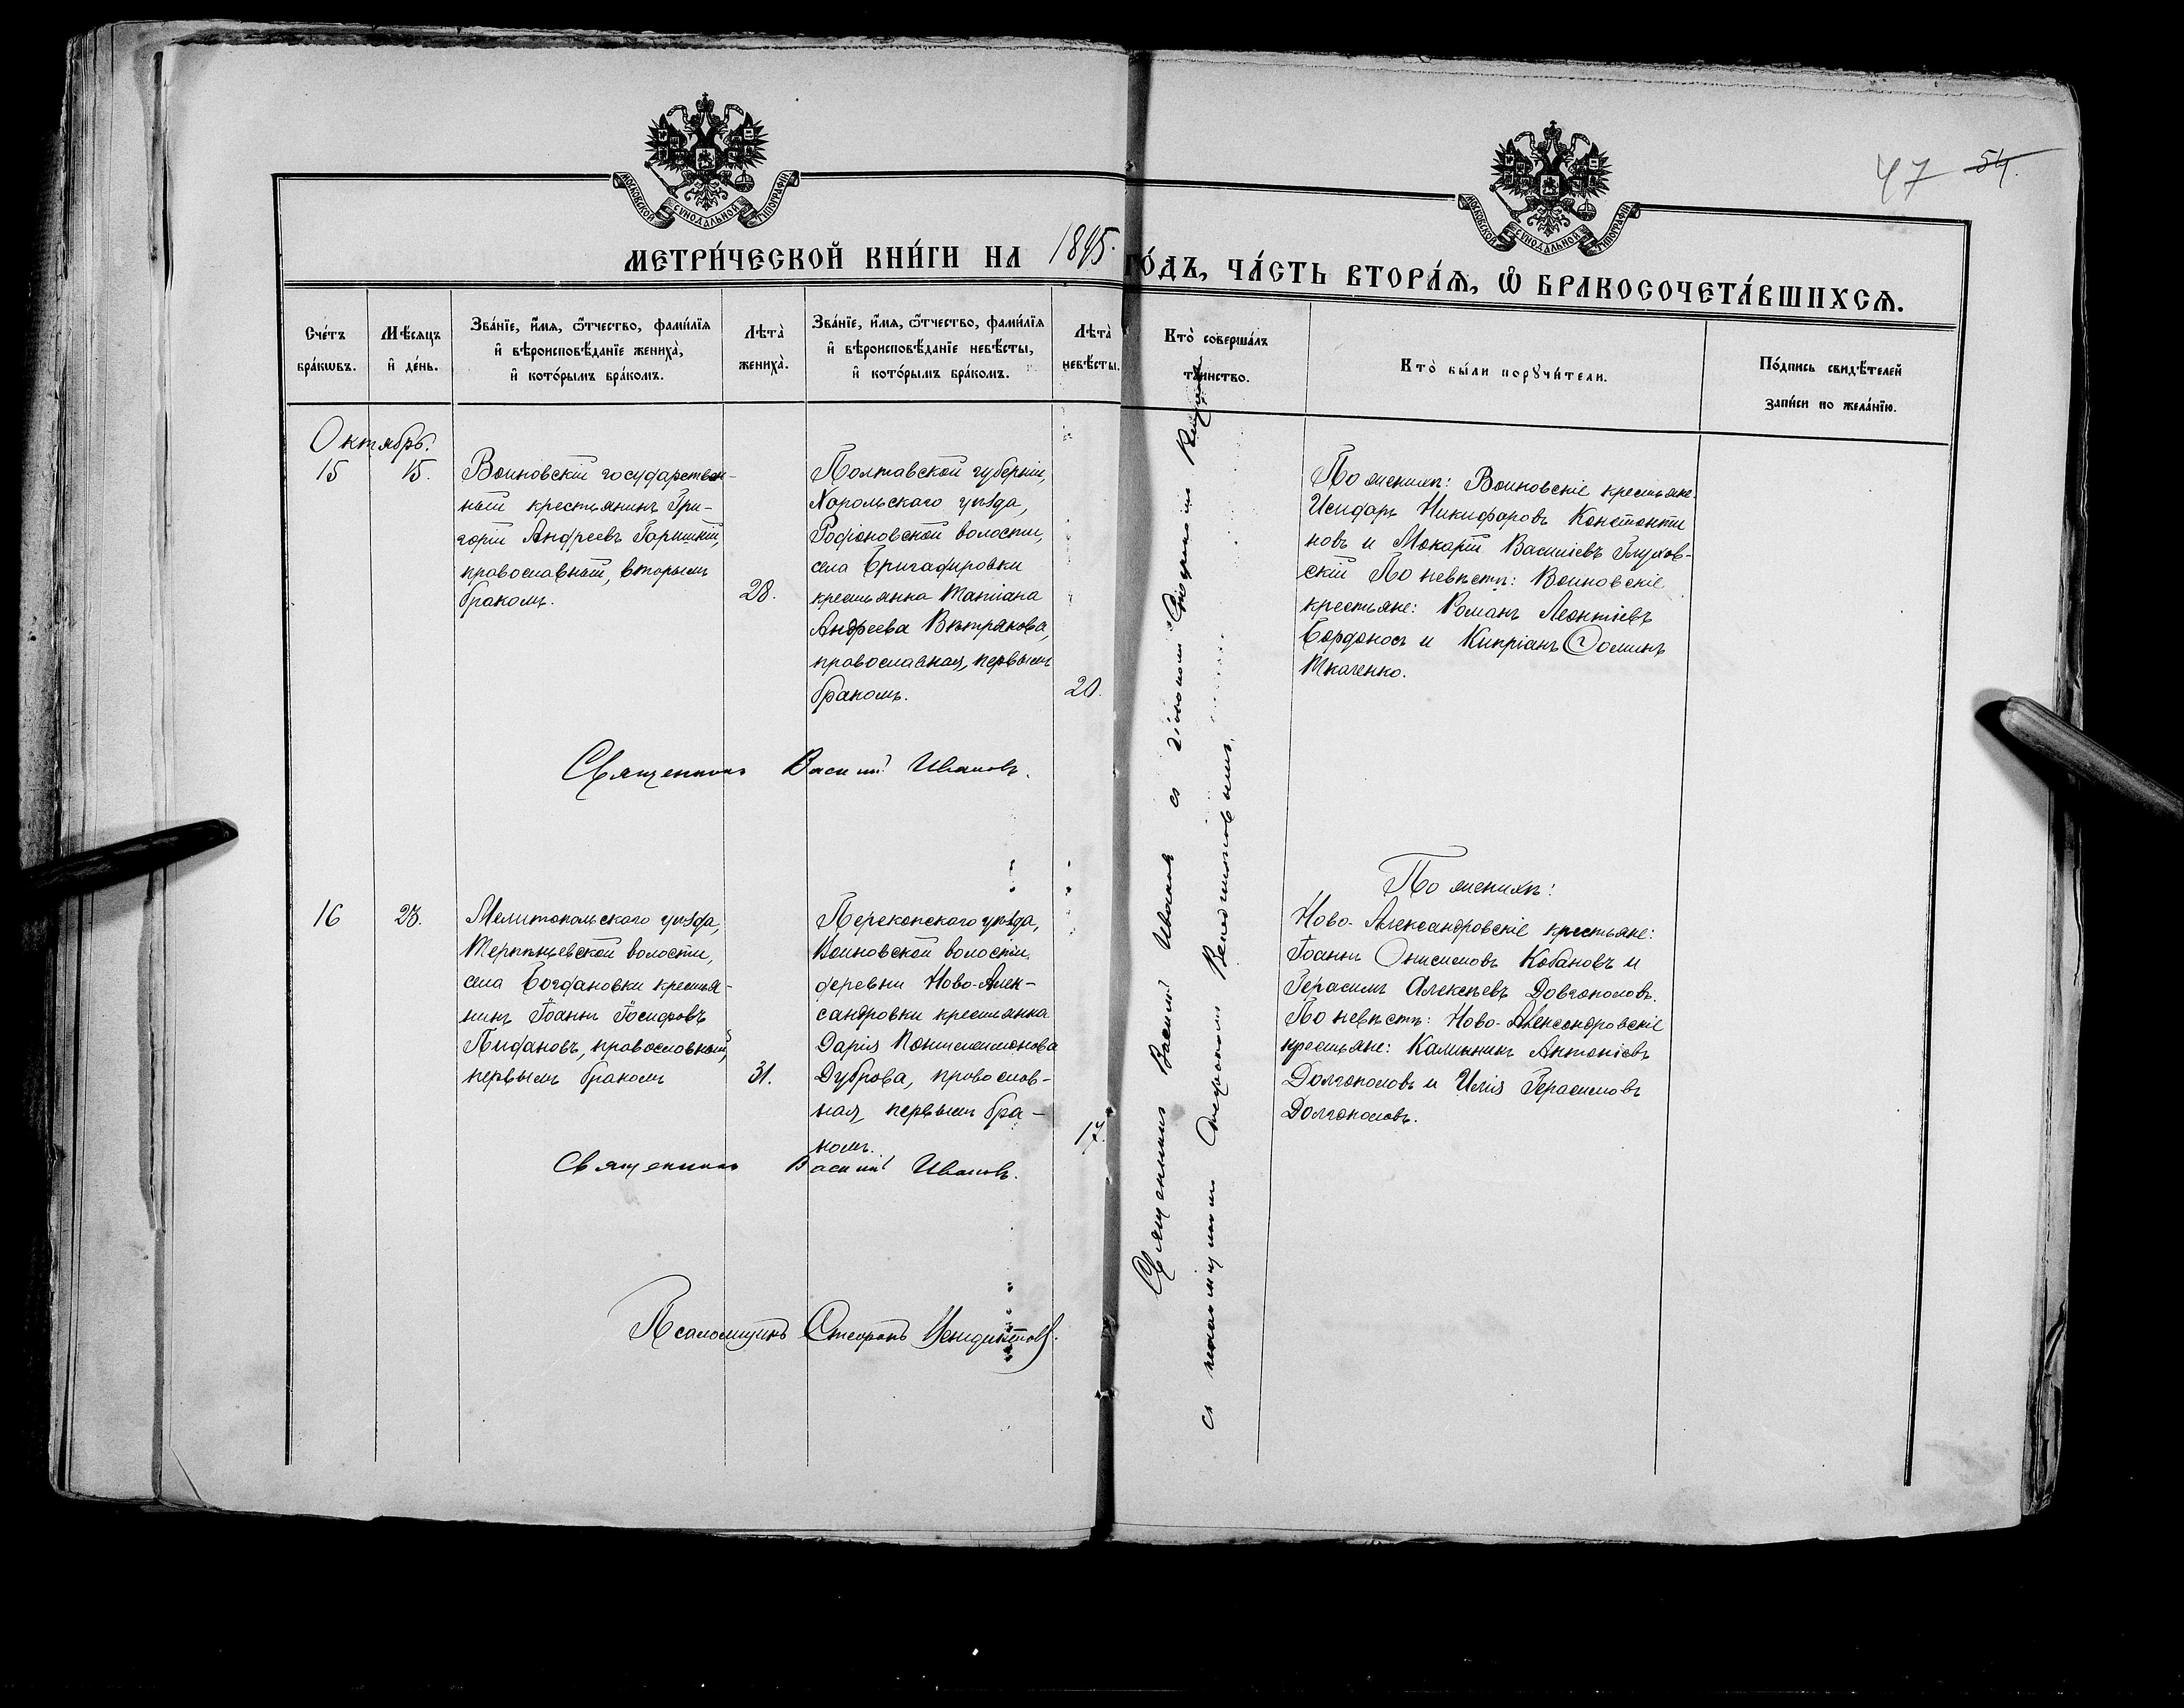 47 54.
МОСКОВСКОЙ СѴНОДАЛЬНОЙ ТИПОГРАФІИ
МОСКОВСКОЙ СѴНОДАЛЬНОЙ ТИПОГРАФІИ
МЕТРИ́ЧЕСКОЙ КНИ́ГИ НА 1895. ГО́ДЪ, ЧА́СТЬ ВТОРА́Ѧ, Ѡ҆ БРАКОСОЧЕТА́ВШИХСѦ.
Сче́тъ
бра́кѡвъ.
Мѣ́сяцъ
и҆ де́нь.
Зва́нїе, и҆́мя, ѻ҆́тчество, фами́лїя
и҆ вѣроисповѣ́данїе жениха̀,
и҆ кото́рымъ бра́комъ.
Лѣта̀
жениха̀.
Зва́нїе, и҆́мя, ѻ҆́тчество, фами́лїя
и҆ вѣроисповѣ́данїе невѣ́сты,
и҆ кото́рымъ бра́комъ.
Лѣта̀
невѣ́сты.
Кто̀ соверша́лъ
та́инство.
Кто̀ бы́ли порꙋчи́тели.
По́дпись свидѣ́телей
за́писи по жела́нїю.
Октябрь.
15
15.
Воиновскій государствен-
ный крестьянинъ Гри-
горій Андреевъ Гарицкій,
православный, вторымъ
бракомъ.
28.
Полтавской губерніи,
Хорольскаго уѣзда,
Родіоновской волости,
села Бригадировки
крестьянка Татіана
Андреева Вѣтрякова,
православная, первымъ
бракомъ.
20.
По женихѣ: Воиновскіе крестьяне
Исидоръ Никифоровъ Константи
новъ и Макарій Василіевъ Глухов-
скій По невѣстѣ: Воиновскіе
крестьяне: Романъ Леонтіевъ
Бордоносъ и Кипріанъ Ѳоминъ
Ткаченко.
Священникъ Василій Ивановъ.
16
23.
Мелитопольскаго уѣзда,
Терпѣньевской волости,
села Богдановки крестья-
нинъ Іоаннъ Іосифовъ
Пифановъ, православный,
первымъ бракомъ
31.
Перекопскаго уѣзда,
Воиновской волости,
деревни Ново-Алек-
сандровки крестьянка
Дарія Пантелеимонова
Дуброва, православ-
ная, первымъ бра-
комъ.
17.
По женихѣ:
Ново-Александровскіе крестьяне:
Іоаннъ Онисимовъ Кобановъ и
Герасимъ Алексѣевъ Довгополовъ.
По невѣстѣ: Ново-Александровскіе
крестьяне: Калинникъ Антоніевъ
Долгополовъ и Илія Герасимовъ
Долгополовъ.
Священникъ Василій Ивановъ.
Псаломщикъ Стефанъ
Священникъ Василій Ивановъ съ
съ псаломщикомъ Стефаномъ